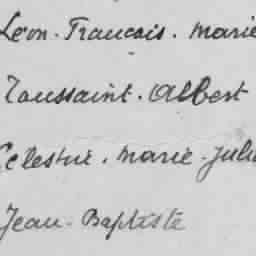 Léon. Francois. Marie
Toussaint. Albert
Celestin. Marie. Juli
Jean. Baptiste